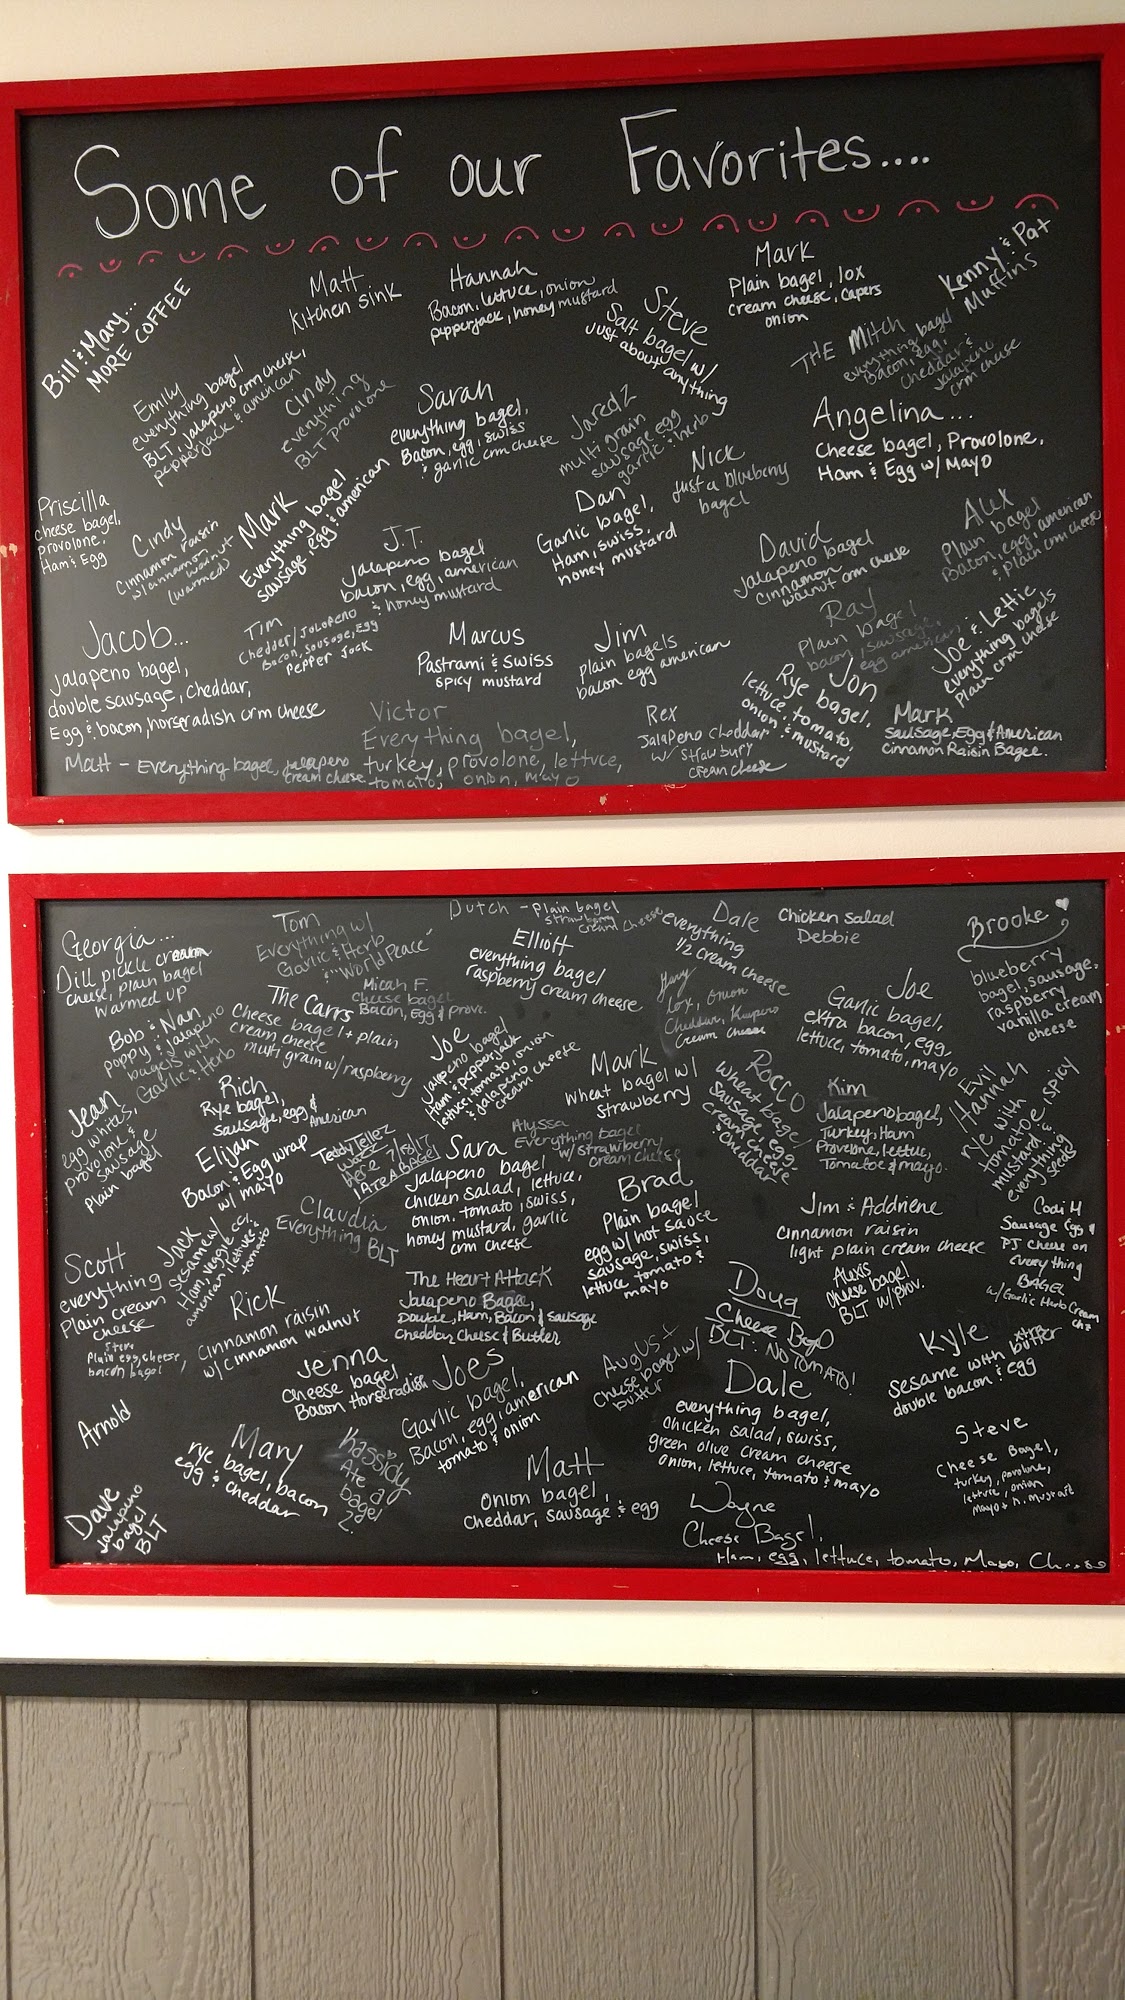 Some of our Favorites....
Bill & Mary...
MORE COFFEE
Matt
Kitchen Sink
Hannah
Bacon, lettuce, onion
pepperjack, honey mustard
Steve
Salt bagel w/
just about anything
Mark
Plain bagel, lox
cream cheese, capers
onion
Kenny & Pat
Muffins
THE Mitch
everything bagel
Bacon, egg,
cheddar &
jalapeno
crm cheese
Emily
everything bagel
BLT, jalapeno crm cheese,
pepperjack & american
Cindy
everything
BLT provolone
Sarah
everything bagel,
Bacon, egg, swiss
& garlic crm cheese
Jared
multi grain
sausage egg
garlic & herb
Nick
Just a blueberry
bagel
Angelina....
Cheese bagel, Provolone,
Ham & Egg w/ Mayo
Priscilla
cheese bagel,
provolone,
Ham & Egg
Cindy
cinnamon raisin
w/ cinnamon walnut
(warmed)
Mark
Everything bagel
sausage, egg & american
J.T.
Jalapeno bagel
bacon, egg, american
& honey mustard
Dan
Garlic bagel,
Ham, swiss,
honey mustard
David
Jalapeno bagel
cinnamon
walnut crm cheese
Alex
Plain bagel
Bacon, egg, american
& plain crm cheese
Jacob...
Jalapeno bagel,
double sausage, cheddar,
Egg & bacon, horseradish crm cheese
Tim
Chedder/Jalopeno
Bacon, Sausage, Egg
Pepper Jack
Marcus
Pastrami & Swiss
spicy mustard
Jim
plain bagels
bacon egg american
Ray
Plain bagel
bacon, sausage,
egg american
Joe & Lettie
everything bagels
plain crm cheese
Jon
Rye bagel,
lettuce, tomato,
onion & mustard
Mark
Sausage, Egg & American
Cinnamon Raisin Bagel.
Victor
Everything bagel,
turkey, provolone, lettuce,
tomato, onion, mayo
Rex
Jalapeno cheddar
w/ strawbury
cream cheese
Matt - Everything bagel, jalapeno
cream cheese
Georgia...
Dill pickle cream
cheese, plain bagel
warmed up
Tom
Everything w/
Garlic & Herb
& "World Peace"
Dutch - Plain bagel
strawberry
cream cheese
Elliott
everything bagel
raspberry cream cheese
Dale
everything
1/2 cream cheese
Chicken Salad
Debbie
Brooke
blueberry
bagel, sausage,
raspberry
vanilla cream
cheese
Micah F.
Cheese bagel
Bacon, Egg & Prov.
The Carrs
Cheese bagel + plain
cream cheese
multi grain w/ raspberry
Bob & Nan
poppy & Jalapeno
bagels with
Garlic & Herb
Joe
Jalapeno bagel
Ham & pepperjack
lettuce, tomato, onion
& jalapeno
cream cheese
Gary
Lox, onion
Cheddar,
cream cheese
Joe
Garlic bagel,
extra bacon, egg,
lettuce, tomato, mayo
Jean
egg whites,
provolone &
sausage
plain bagel
Rich
Rye bagel,
Sausage, egg &
American
Mark
Wheat bagel w/
strawberry
Rocco
Wheat bagel,
sausage, egg,
cream cheese
cheddar
Kim
Jalapeno bagel,
Turkey, Ham
Provelone, lettuc,
Tomatoe & mayo.
Evil
Hannah
rye with
tomatoe, spicy
mustard &
everything
seeds
Elijah
Bacon & Egg wrap
w/ mayo
Teddy Tellez
was
here 7/8/17
I ATE A BAGEL
Sara
Jalapeno bagel
chicken salad, lettuce,
onion, tomato, swiss,
honey mustard, garlic
crm cheese
Alyssa
Everything bagel
w/ strawberry
cream cheese
Brad
Plain bagel
egg w/ hot sauce
sausage, swiss,
lettuce, tomato &
mayo
Jim & Addriene
cinnamon raisin
light plain cream cheese
Codi H
Sausage Egg &
PJ cheese on
Everything
BAGEL
w/ Garlic Herb Cream
chz
Scott
everything
Plain cream
cheese
Jack
Sesame w/
Ham, veggie cc,
american lettuce &
tomato
Claudia
Everything BLT
The Heart Attack
Jalapeno Bagel,
Double, Ham, Bacon & Sausage
Cheddar Cheese & Butter
Doug
Cheese Bagel
BLT: NO TOMATO!
Alexis
Cheese bagel
BLT w/ Prov.
Rick
cinnamon raisin
w/ cinnamon walnut
Steve
Plain egg, cheese,
bacon bagel
Jenna
Cheese bagel,
Bacon Horseradish
Joes
Garlic bagel,
Bacon, egg, american
tomato & onion
August
Cheese bagel w/
butter
Dale
everything bagel,
chicken salad, swiss,
green olive cream cheese
onion, lettuce, tomato & mayo
Kyle
sesame with xtra butter
double bacon & egg
Arnold
Mary
rye bagel, bacon
egg & cheddar
Kassidy
Ate a
bagel
2.
Matt
Onion bagel,
Cheddar, sausage & egg
Steve
Cheese Bagel,
turkey, provolone,
lettuce, onion
Mayo + h. mustard
Dave
Jalapeno
bagel
BLT
Wayne
Cheese Bagel,
Ham, egg, lettuce, tomato, Mayo,